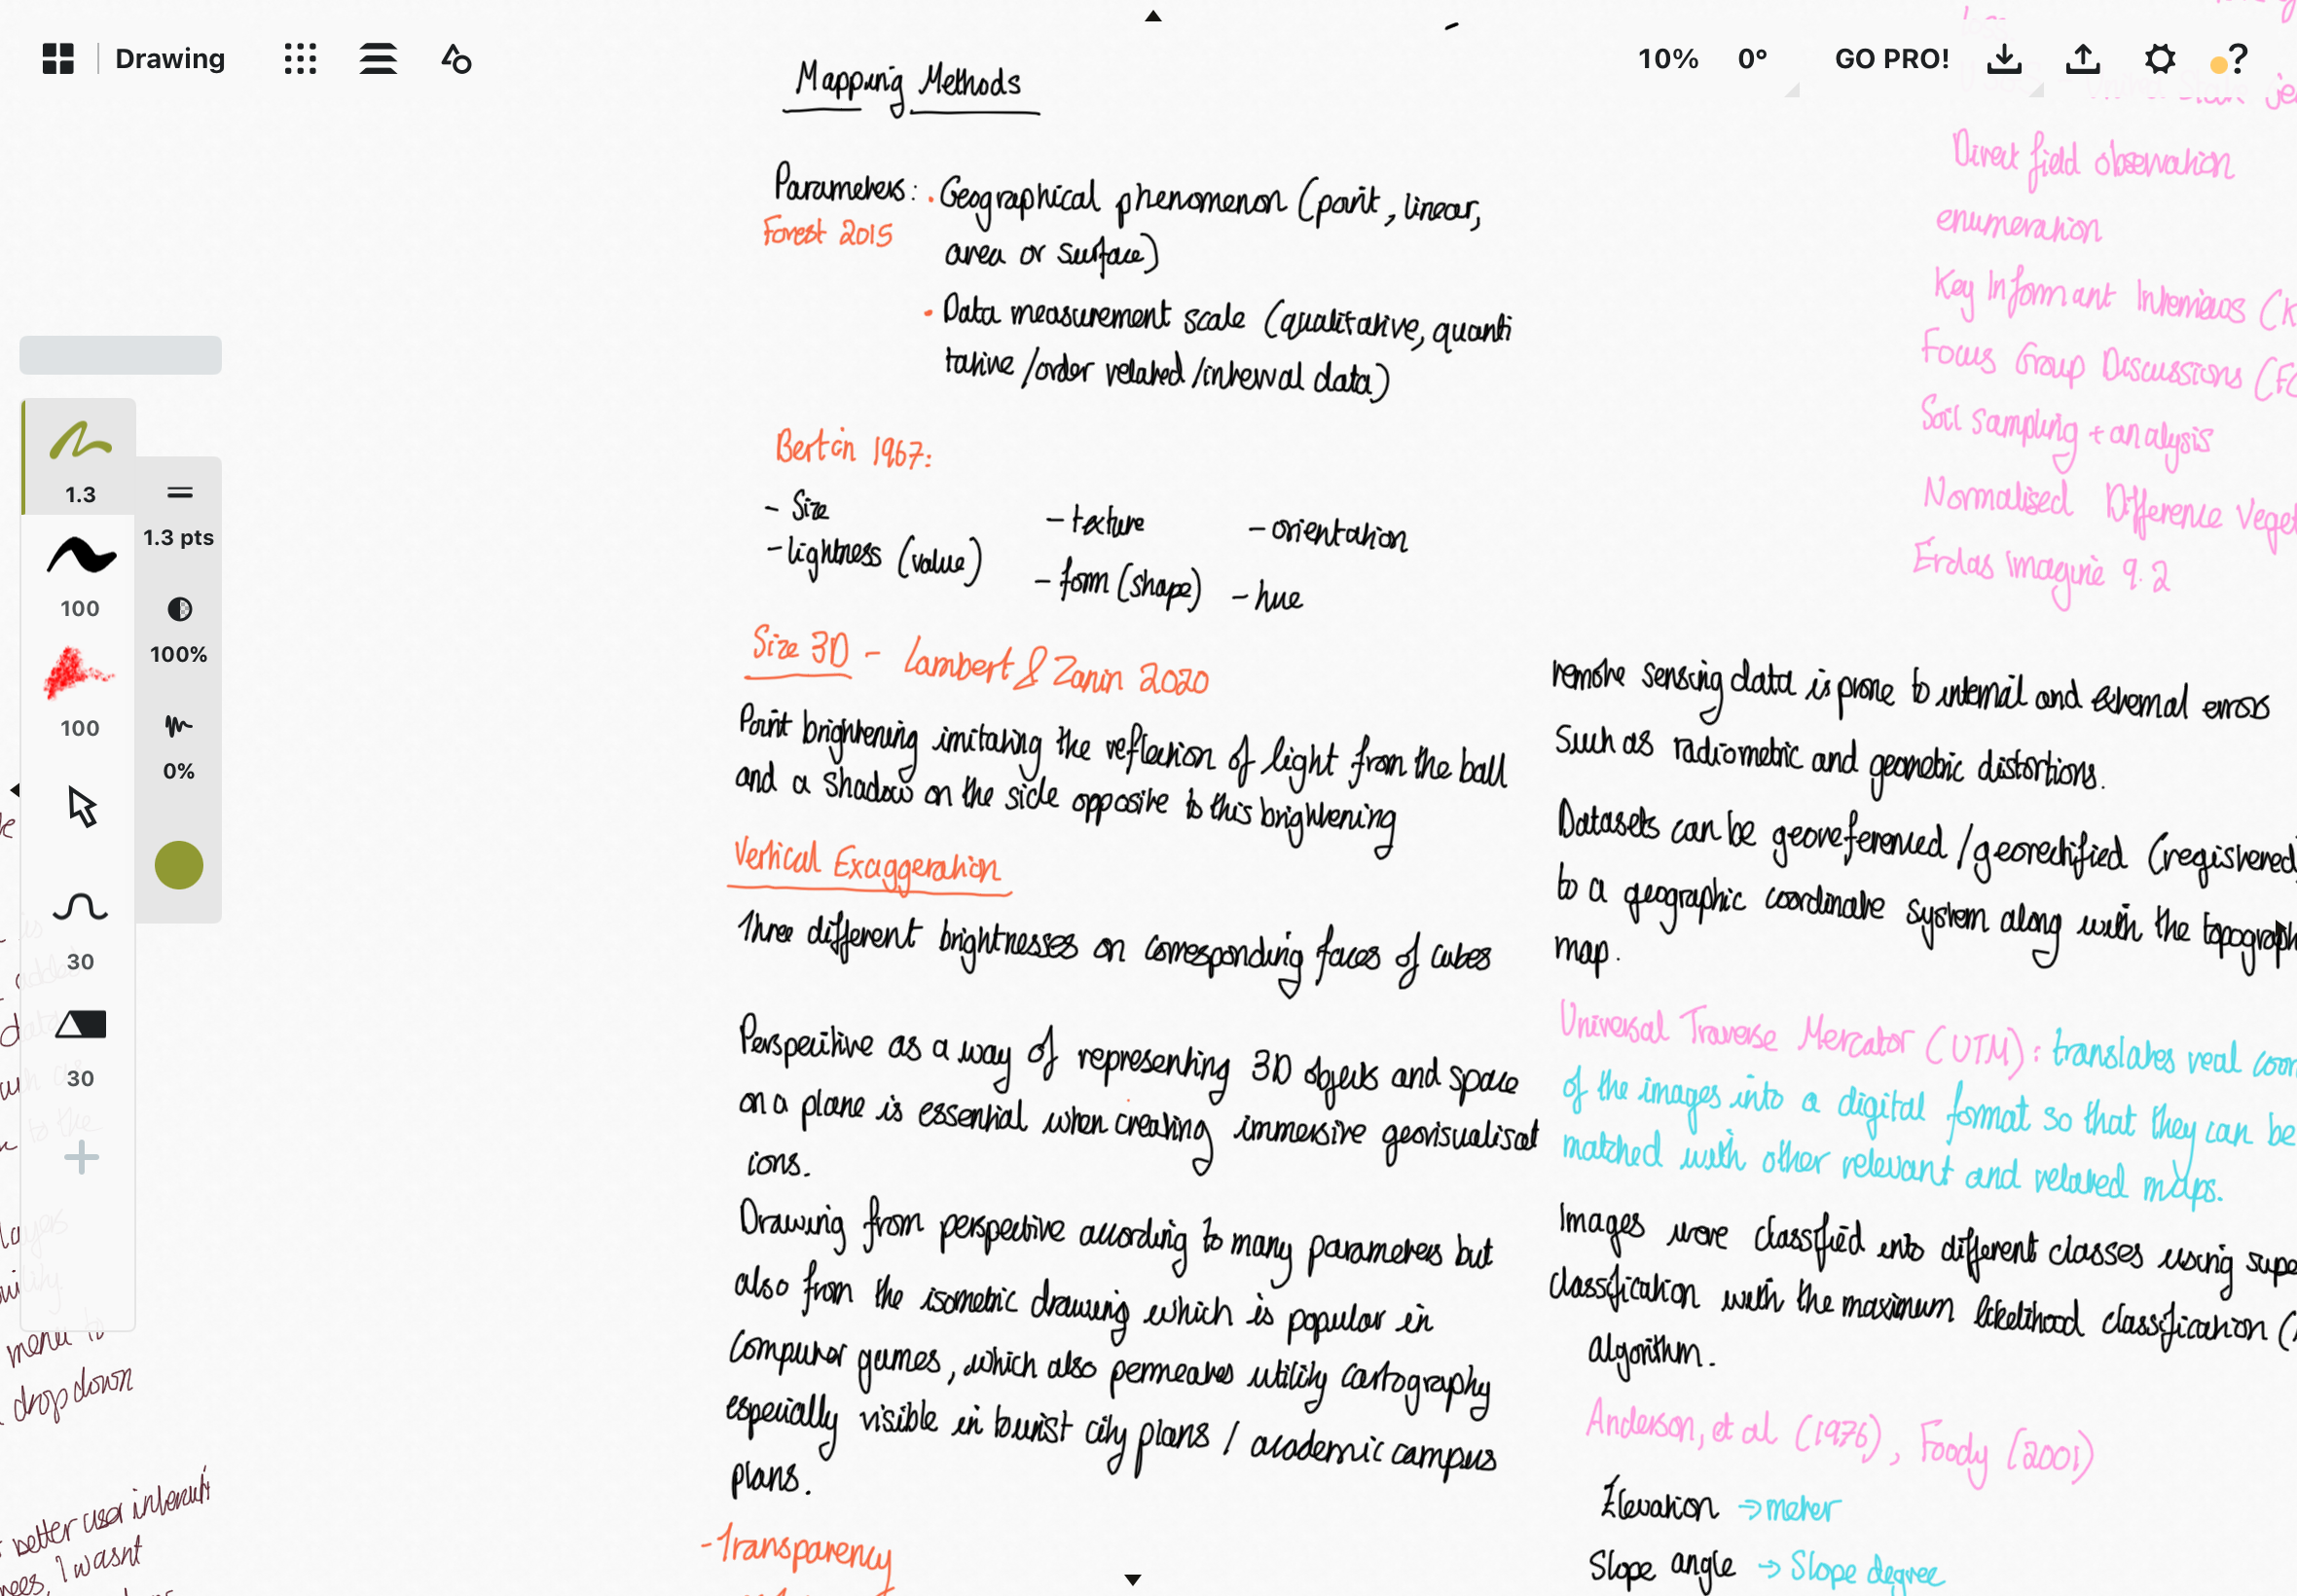 Drawing
10%
0°
GO PRO!
?
Mapping Methods
Parameters: • Geographical phenomenon (point, linear,
Forest 2015
area or surface)
• Data measurement scale (qualitative, quanti
tative /order related /interval data)
Bertin 1967:
- Size
- texture
- orientation
- lightness (value)
- form (shape)
- hue
Size 3D - Lambert & Zanin 2020
Point brightening imitating the reflection of light from the ball
and a shadow on the side opposite to this brightening
Vertical Exaggeration
Three different brightnesses on corresponding faces of cubes
Perspective as a way of representing 3D objects and space
on a plane is essential when creating immersive geovisualisat
ions.
Drawing from perspective according to many parameters but
also from the isometric drawing which is popular in
computer games, which also permeates utility cartography
especially visible in tourist city plans / academic campus
plans.
- Transparency
Direct field observation
enumeration
Key Informant Interviews (K
Focus Group Discussions (FG
Soil sampling + analysis
Normalised Difference Veget
Erdas Imagine 9.2
remote sensing data is prone to internal and external errors
Such as radiometric and geometric distortions.
Datasets can be georeferenced /georectified (registered
to a geographic coordinate system along with the topograph
map.
Universal Traverse Mercator (UTM): translates real coor
of the images into a digital format so that they can be
matched with other relevant and related maps.
Images were classified into different classes using supe
classification with the maximum likelihood classification (
algorithm.
Anderson, et al (1976), Foody (2001)
Elevation → meter
Slope angle → Slope degree
1.3
100
100
30
30
1.3 pts
100%
0%
is
added
data
to the
layers
menu to
drop down
better user interacti
I wasnt